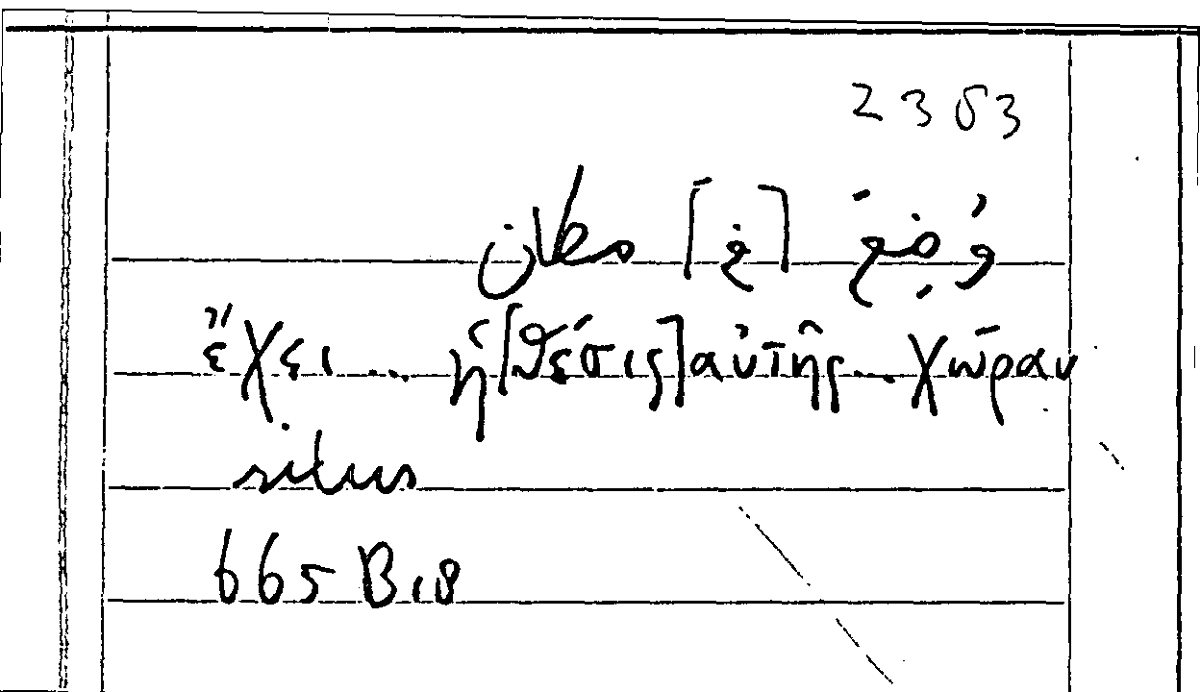 2383
وُضِعَ [في] مكان
ἔχει ... ἡ [θέσις] αὐτῆς ... χώραν
situs
665 B18